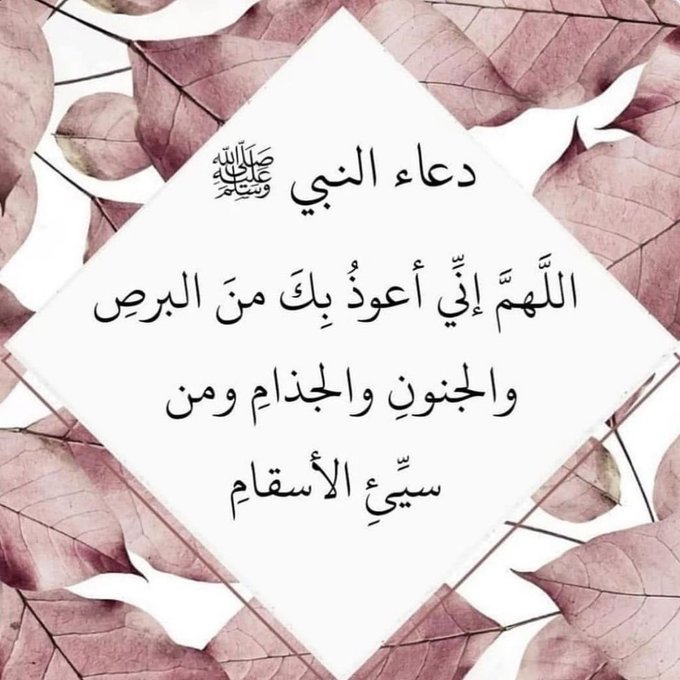 دعاء النبي ﷺ
اللَّهمَّ إنِّي أعوذُ بِكَ منَ البرصِ
والجنونِ والجذامِ ومن
سيِّئِ الأسقامِ